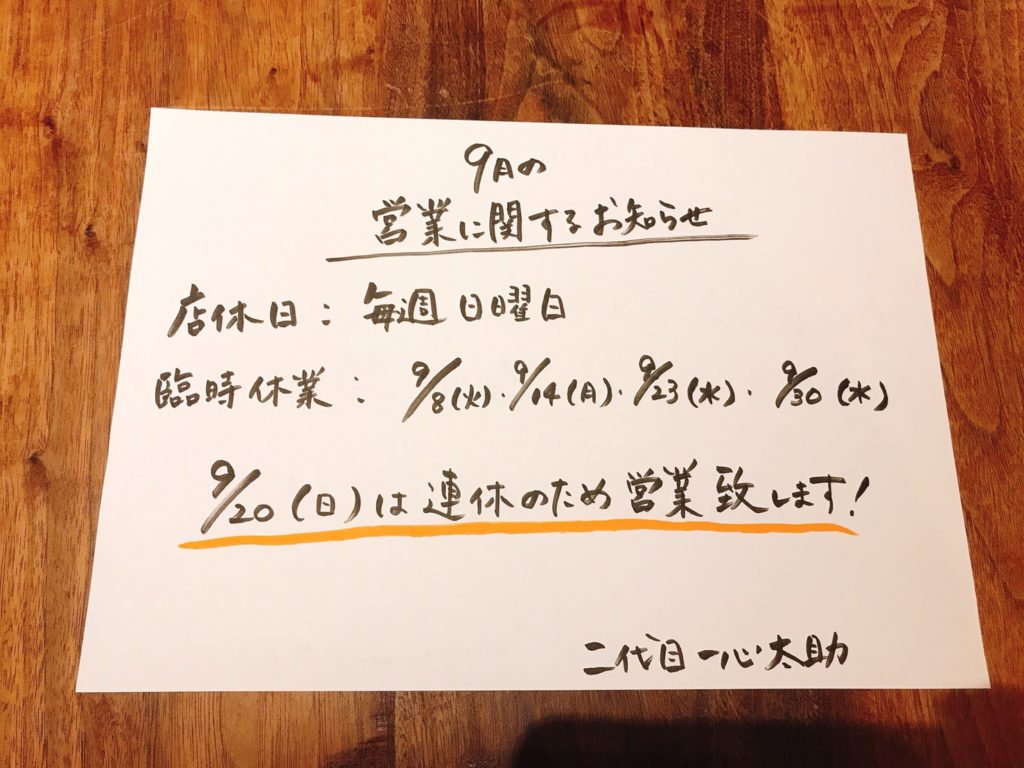 9月の
営業に関するお知らせ
店休日：毎週日曜日
臨時休業：9/8(火)・9/14(月)・9/23(水)・9/30(水)
9/20(日)は連休のため営業致します!
二代目一心太助